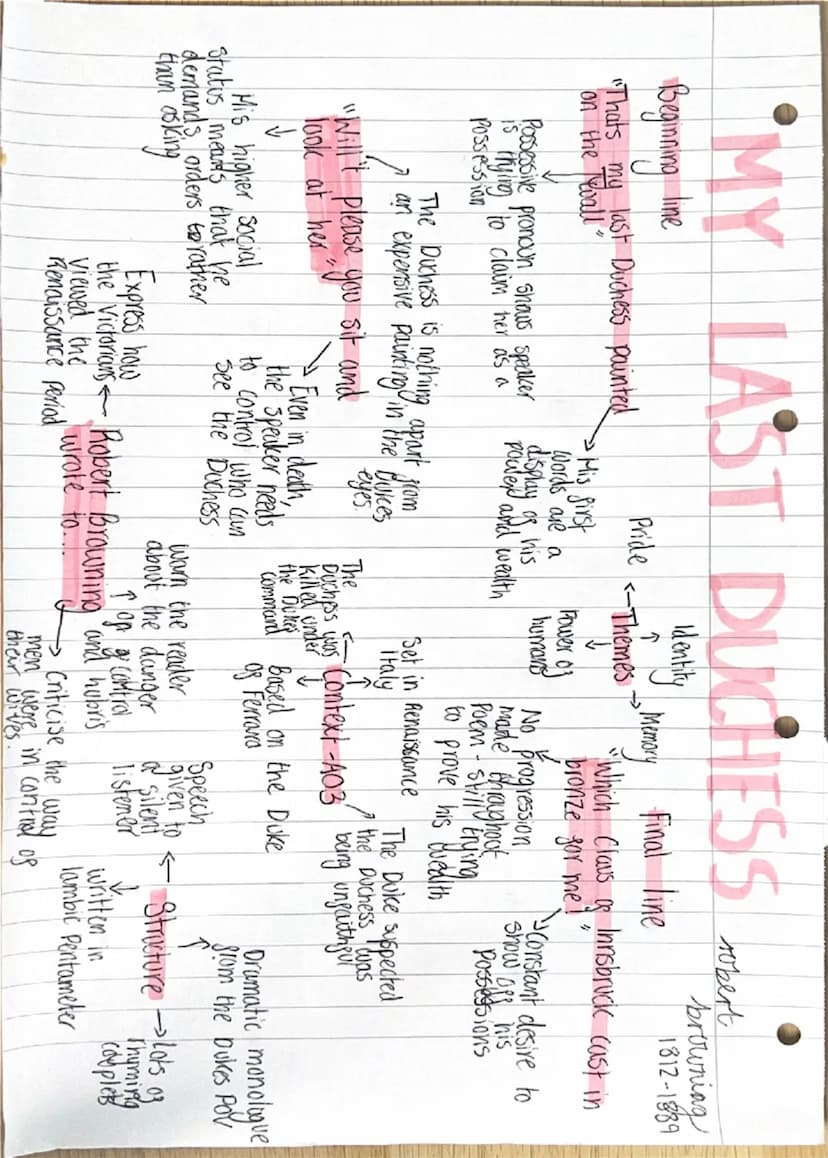 MY LAST DUCHESS
robert
browning
1812-1889
Beginning line
"Thats my last Duchess painted
on the wall"
Possessive pronoun shows speaker
is trying to claim her as a
possession
His first
words are a
display of his
power and wealth
Identity
Pride
Themes
Memory
Power of
humans
Final line
"Which Claus of Innsbruck cast in
bronze for me!"
No progression
made throughout
Poem - still trying
to prove his wealth
Constant desire to
show off his
Possessions
The Duchess is nothing apart from
an expensive painting in the Dukes
eyes.
"Will't please you sit and
look at her"
His higher social
status means that he
demands orders rather
than asking
Even in death,
the speaker needs
to control who can
see the Duchess
Set in Renaissance
Italy
Context-AO3
The
Duchess was
killed under
the Dukes
command
Based on the Duke
of Ferrara
The Duke suspected
the Duchess was
being unfaithful
Robert Browning
wrote to...
Express how
the Victorians
viewed the
Renaissance period
warn the reader
about the danger
of control
and hubris
Criticise the way
men were in control of
their wives.
Structure
Speech
given to
a silent
listener
Dramatic monologue
from the Dukes POV
written in
Iambic Pentameter
Lots of
rhyming
couplets